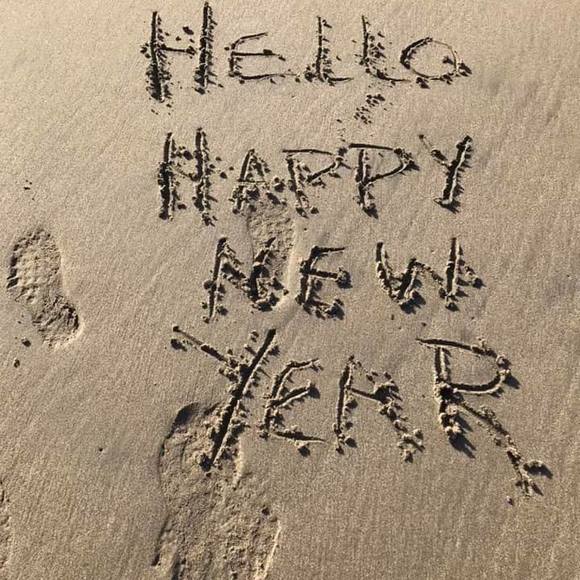 HELLO
HAPPY
NEW
YEAR